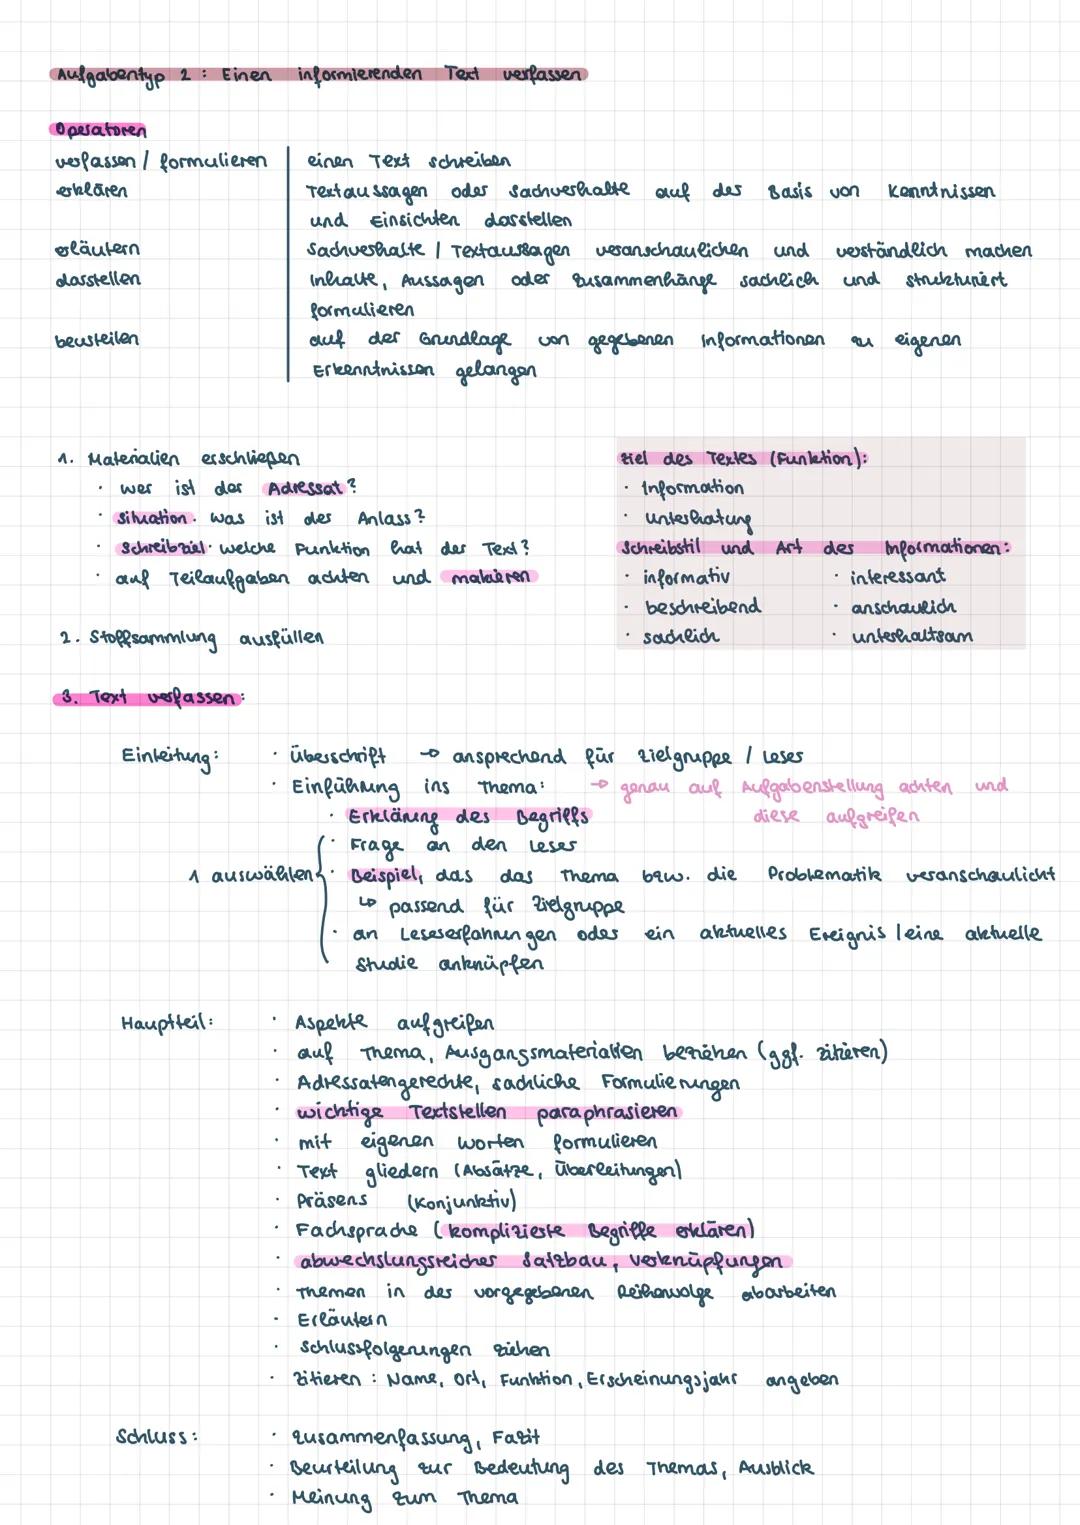 Aufgabentyp 2 : Einen informierenden Text verfassen
Operatoren
verfassen / formulieren einen Text schreiben
erklären Textaussagen oder Sachverhalte auf der Basis von Kenntnissen
und Einsichten darstellen
erläutern Sachverhalte / Textaussagen veranschaulichen und verständlich machen
darstellen Inhalte, Aussagen oder Zusammenhänge sachlich und strukturiert
formulieren
beurteilen auf der Grundlage von gegebenen Informationen zu eigenen
Erkenntnissen gelangen
1. Materialien erschließen
· wer ist der Adressat?
· Situation. was ist der Anlass?
· Schreibziel· welche Funktion hat der Text?
· auf Teilaufgaben achten und makieren
2. Stoffsammlung ausfüllen
Ziel des Textes (Funktion):
· Information
· Unterhatung
Schreibstil und Art der Informationen:
· informativ · interessant
· beschreibend · anschaulich
· sachlich · unterhaltsam
3. Text verfassen:
Einleitung: · Überschrift → ansprechend für Zielgruppe / Leser
· Einführung ins Thema: → genau auf Aufgabenstellung achten und
diese aufgreifen
· Erklärung des Begriffs
· Frage an den Leser
1 auswählen · Beispiel, das das Thema bzw. die Problematik veranschaulicht
↳ passend für Zielgruppe
· an Leseserfahrungen oder ein aktuelles Ereignis / eine aktuelle
Studie anknüpfen
Hauptteil: · Aspekte aufgreifen
· auf Thema, Ausgangsmaterialien beziehen (ggf. zitieren)
· Adressatengerechte, sachliche Formulierungen
· wichtige Textstellen paraphrasieren
· mit eigenen Worten formulieren
· Text gliedern (Absätze, Überleitungen)
· Präsens (Konjunktiv)
· Fachsprache (komplizierte Begriffe erklären)
· abwechslungsreicher Satzbau, Verknüpfungen
· Themen in der vorgegebenen Reihenvolge abarbeiten
· Erläutern
· Schlussfolgerungen ziehen
· Zitieren : Name, Ort, Funktion, Erscheinungsjahr angeben
Schluss: · Zusammenfassung, Fazit
· Beurteilung zur Bedeutung des Themas, Ausblick
· Meinung zum Thema